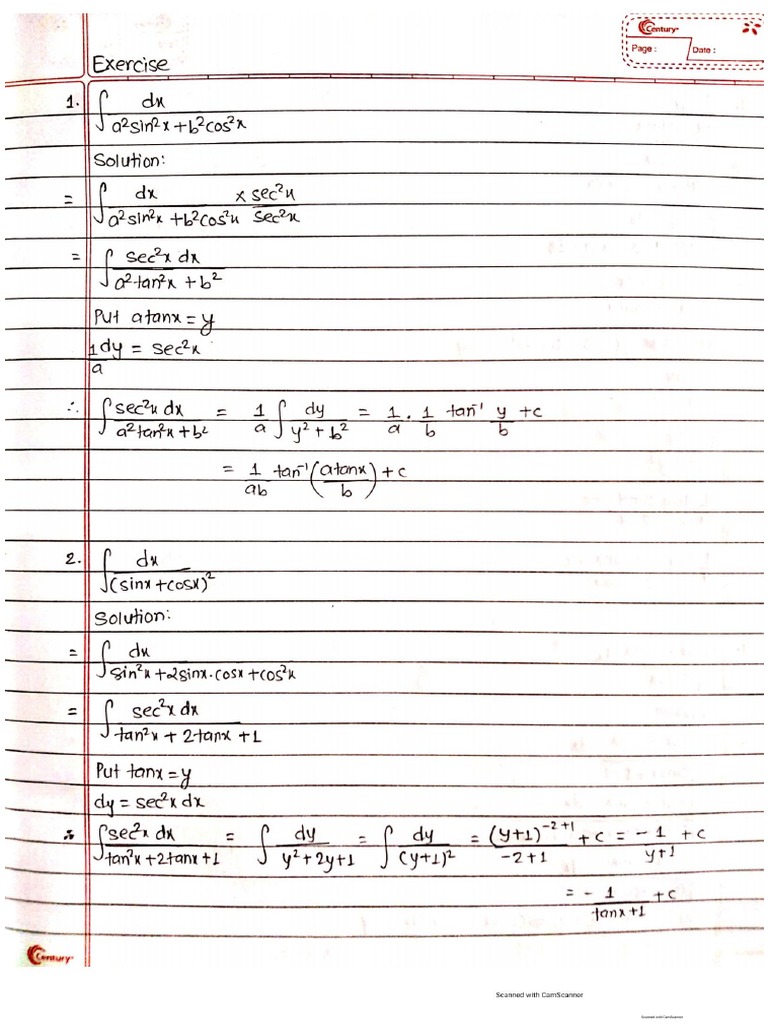 Century
Page : Date :
Exercise
1. ∫ dx / (a²sin²x + b²cos²x)
Solution:
= ∫ dx / (a²sin²x + b²cos²x) × sec²x / sec²x
= ∫ sec²x dx / (a²tan²x + b²)
Put atanx = y
1/a dy = sec²x
∴ ∫ sec²x dx / (a²tan²x + b²) = 1/a ∫ dy / (y² + b²) = 1/a . 1/b tan⁻¹ y/b + c
= 1/ab tan⁻¹ (atanx / b) + c
2. ∫ dx / (sinx + cosx)²
Solution:
= ∫ dx / (sin²x + 2sinx.cosx + cos²x)
= ∫ sec²x dx / (tan²x + 2tanx + 1)
Put tanx = y
dy = sec²x dx
∴ ∫ sec²x dx / (tan²x + 2tanx + 1) = ∫ dy / (y² + 2y + 1) = ∫ dy / (y+1)² = (y+1)⁻²⁺¹ / (-2+1) + c = - 1 / (y+1) + c
= - 1 / (tanx + 1) + c
Century
Scanned with CamScanner
Scanned with CamScanner